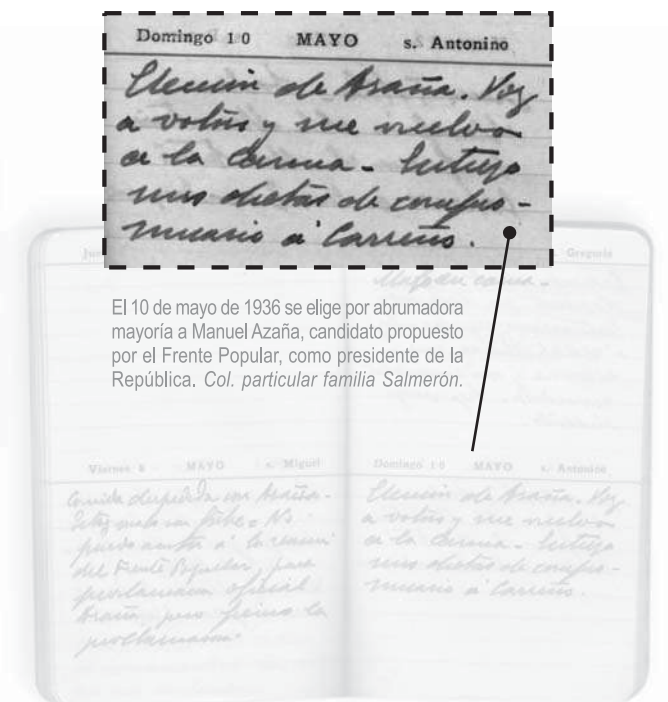 Domingo 10 MAYO s. Antonino
Elección de Azaña. Voy
a votar y me vuelvo
a la cama - Entrego
mis dietas de compro-
misario a Carreño.
s. Gregorio
cama -
El 10 de mayo de 1936 se elige por abrumadora
mayoría a Manuel Azaña, candidato propuesto
por el Frente Popular, como presidente de la
República. Col. particular familia Salmerón.
Viernes 8 MAYO s. Miguel
Comida despedida con Azaña -
Estoy malo con fiebre - No
puedo asistir a la reunión
del Frente Popular, para
proclamación oficial
Azaña pero firmo la
proclamación.
Domingo 10 MAYO s. Antonino
Elección de Azaña. Voy
a votar y me vuelvo
a la cama - Entrego
mis dietas de compro-
misario a Carreño.